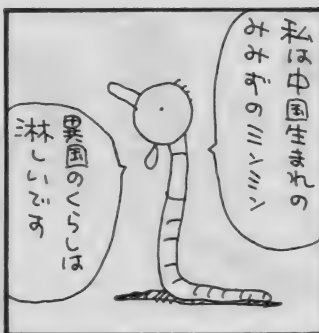 私は中国生まれの
みみずのミンミン
異国のくらしは
淋しいです